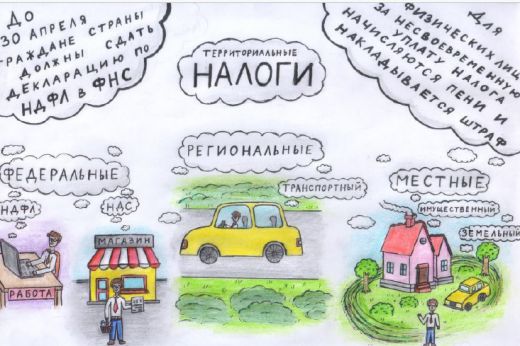 ДО
30 АПРЕЛЯ
ГРАЖДАНЕ СТРАНЫ
ДОЛЖНЫ СДАТЬ
ДЕКЛАРАЦИЮ ПО
НДФЛ В ФНС
ТЕРРИТОРИАЛЬНЫЕ
НАЛОГИ
ДЛЯ
ФИЗИЧЕСКИХ ЛИЦ
ЗА НЕСВОЕВРЕМЕННУЮ
УПЛАТУ НАЛОГА
НАЧИСЛЯЮТСЯ ПЕНИ И
НАКЛАДЫВАЕТСЯ ШТРАФ
ФЕДЕРАЛЬНЫЕ
НДФЛ
НДС
РАБОТА
МАГАЗИН
РЕГИОНАЛЬНЫЕ
ТРАНСПОРТНЫЙ
МЕСТНЫЕ
ИМУЩЕСТВЕННЫЙ
ЗЕМЕЛЬНЫЙ